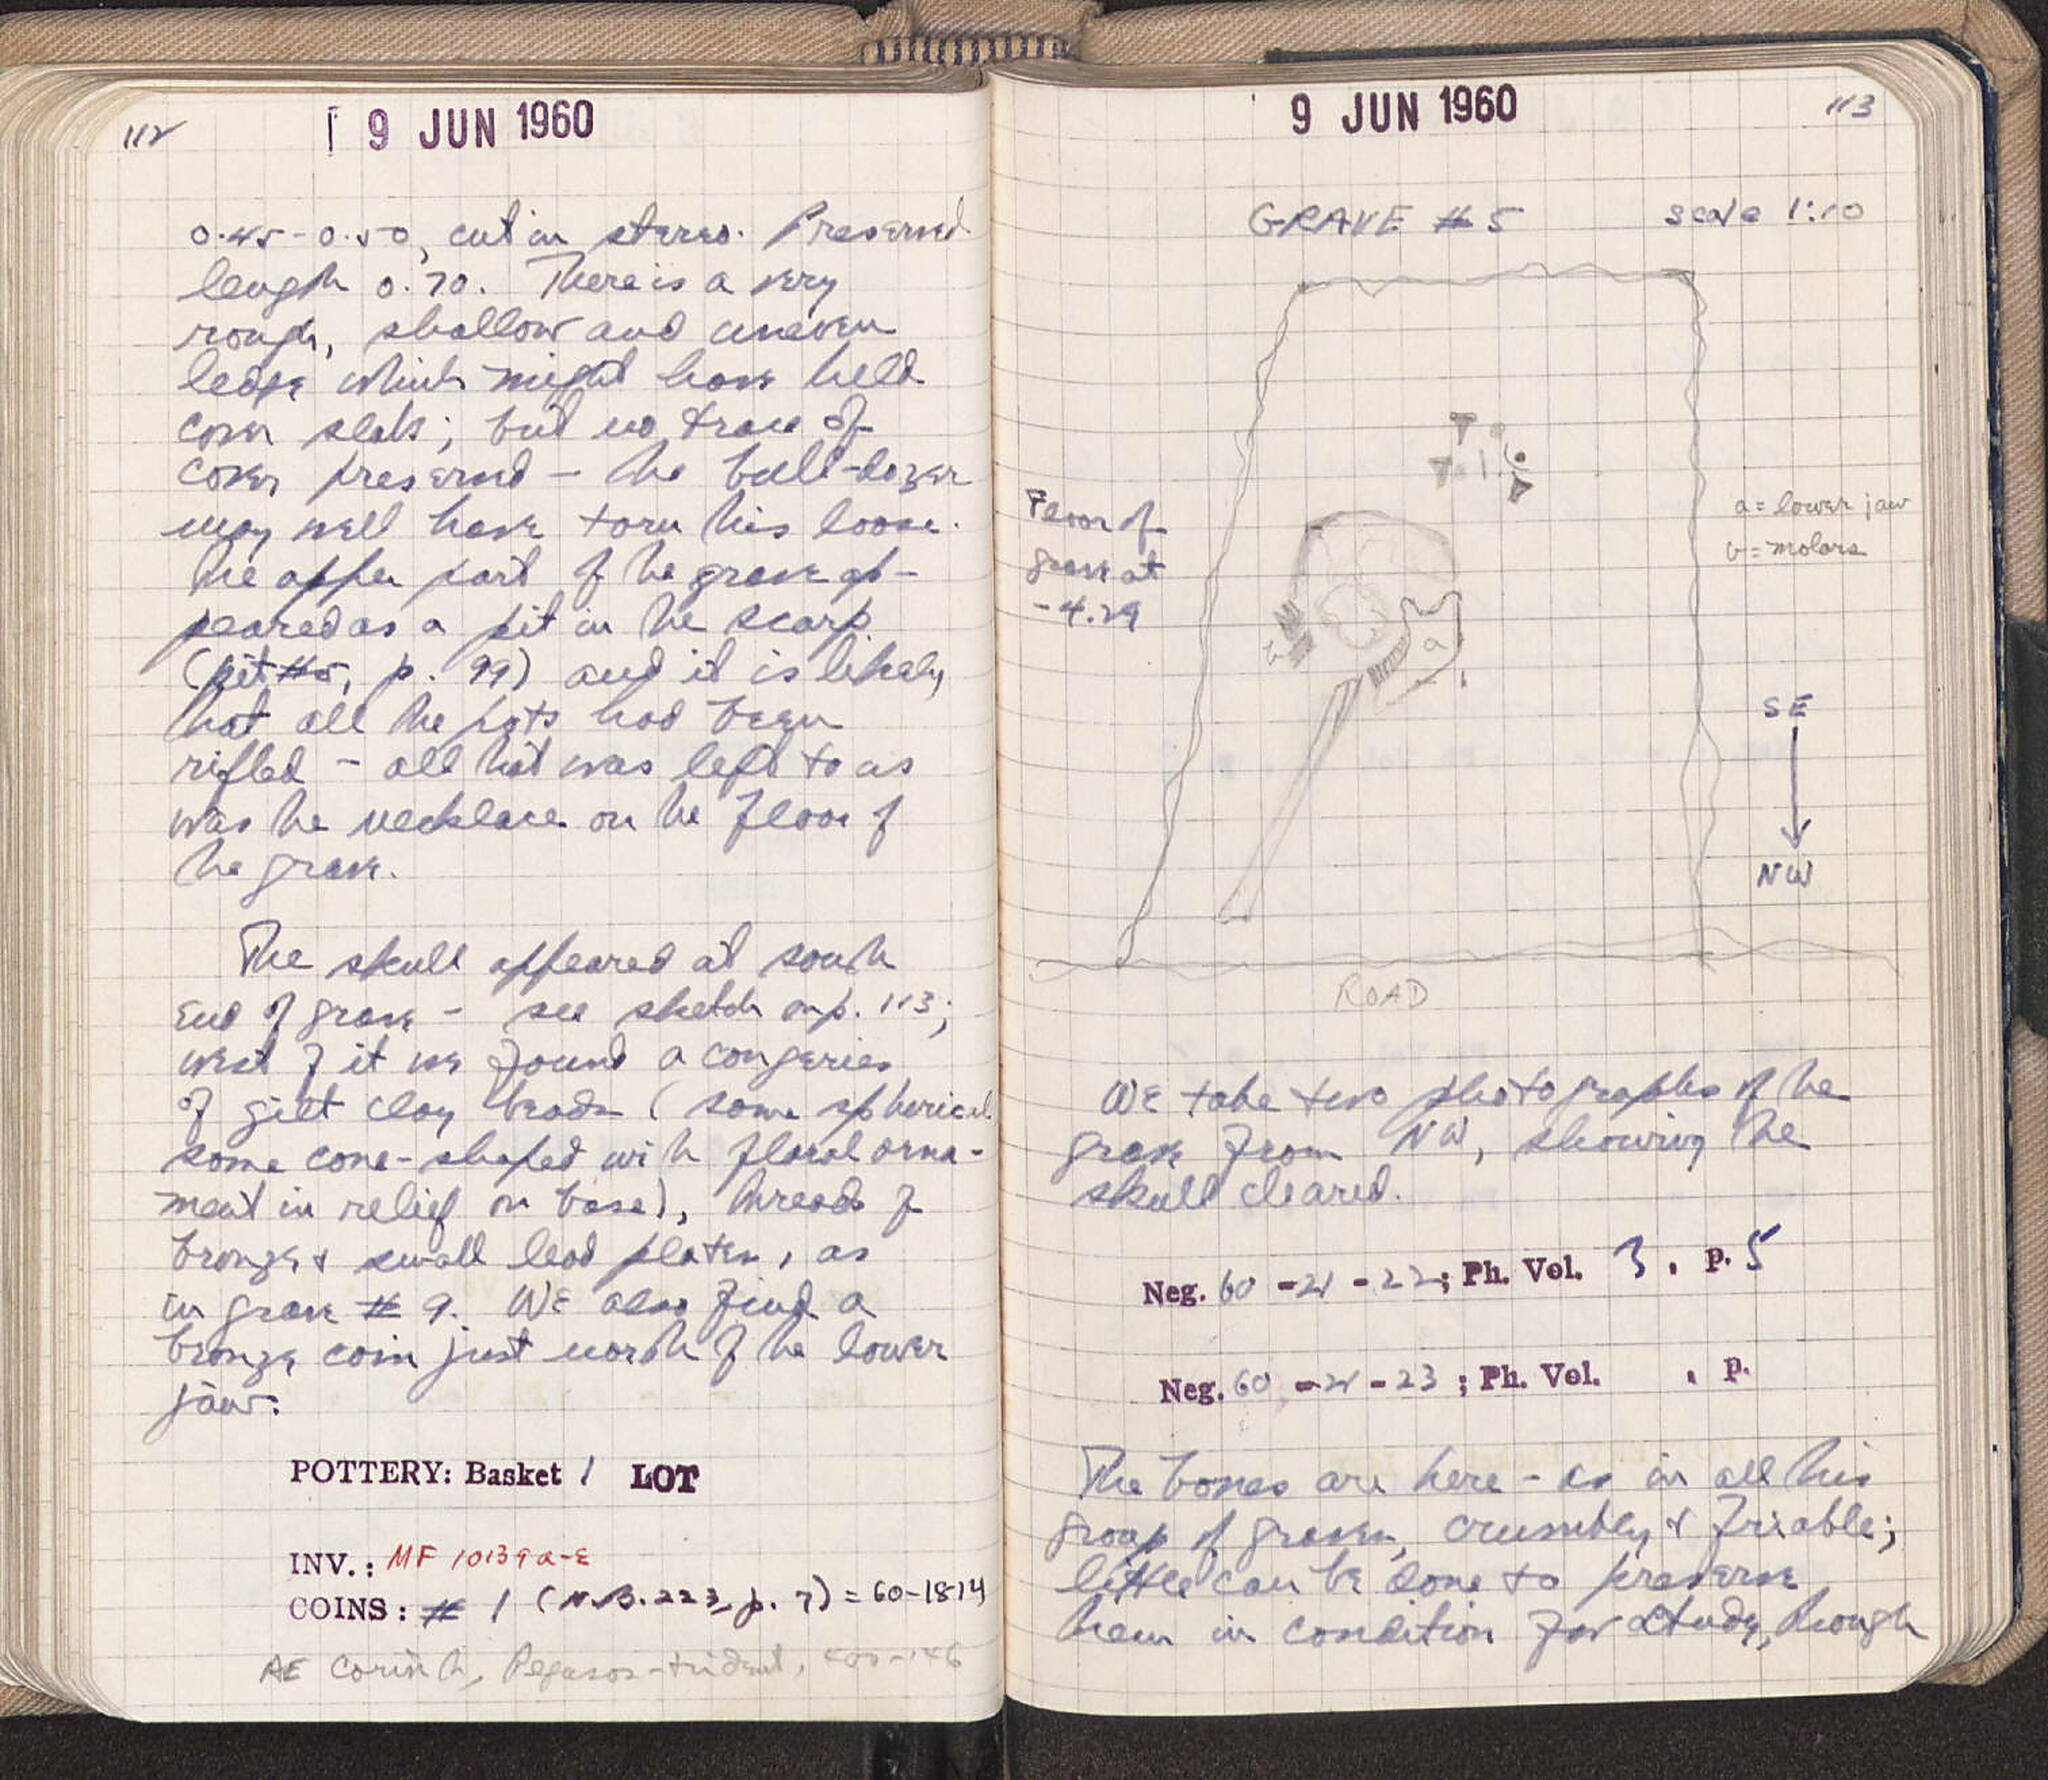 112
9 JUN 1960
0.45-0.50, cut in stereo. Preserved
length 0.70. There is a very
rough, shallow and uneven
ledge which might have held
cover slabs; but no trace of
cover preserved - the bull-dozer
may well have torn this loose.
The upper part of the grave ap-
peared as a pit in the scarp
(pit #5, p. 99) and it is likely
that all the pots had been
rifled - all that was left to us
was the necklace on the floor of
the grave.
The skull appeared at south
end of grave - see sketch on p. 113;
west of it we found a congeries
of gilt clay beads (some spherical
some cone-shaped with floral orna-
ment in relief on base), threads of
bronze & small lead plates, as
in grave # 9. We also find a
bronze coin just north of the lower
jaw.
POTTERY: Basket 1 LOT
INV.: MF 10139a-e
COINS: # 1 (N.B. 223, p. 7) = 60-18-14
AE Corinth, Pegasos-trident, 400-146
9 JUN 1960
113
GRAVE # 5 scale 1:10
Floor of
grave at
-4.29
a = lower jaw
b = molars
a
b
SE
NW
ROAD
We take two photographs of the
grave from NW, showing the
skull cleared.
Neg. 60 - 21 - 22; Ph. Vol. 3, p. 5
Neg. 60 - 21 - 23; Ph. Vol. , p.
The bones are here - as in all this
group of graves, crumbly & friable;
little can be done to preserve
them in condition for study, though